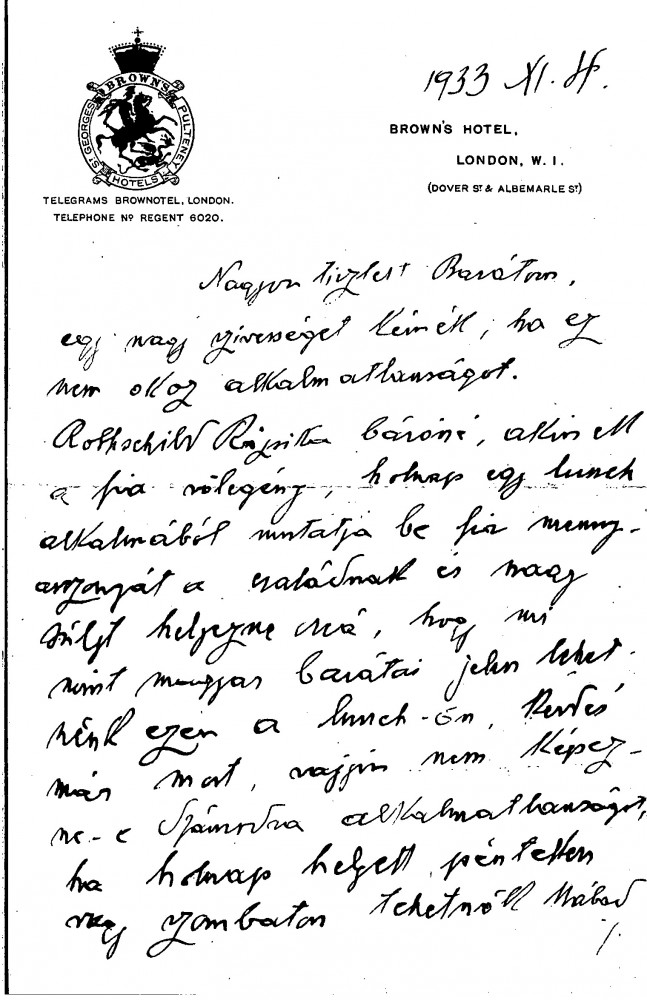 BROWN'S
ST GEORGES
PULTENEY
HOTELS
TELEGRAMS BROWNOTEL, LONDON.
TELEPHONE Nº REGENT 6020.
1933 XI.
BROWN'S HOTEL,
LONDON, W. I.
(DOVER ST & ALBEMARLE ST)
Nagyon tisztelt Barátom,
egy nagy szivességet kérnék, ha ez
nem okoz alkalmatlanságot.
Rothschild Rózsika báróné, akinek
a fia vőlegény, holnap egy lunch
alkalmából mutatja be fia meny-
asszonyát a családnak és nagy
súlyt helyezne rá, hogy mi
mint magyar barátai jelen lehet-
nénk ezen a lunch-ön. Kérdés
már most, vajjon nem képez-
ne-e számodra alkalmatlanságot,
ha holnap helyett pénteken
vagy szombaton tehetnők Nálad
/.